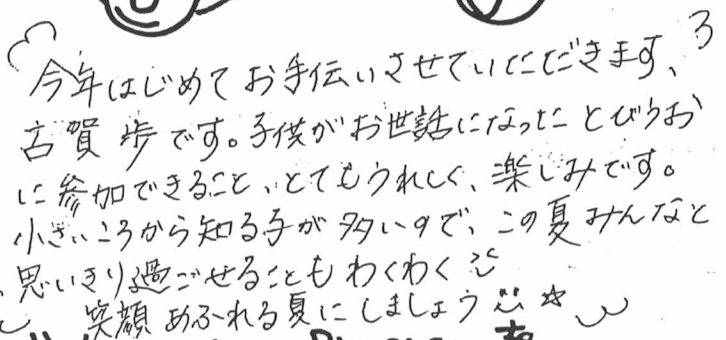 今年はじめてお手伝いさせていただきます、
古賀 歩です。子供がお世話になったとびうお
に参加できること、とてもうれしく、楽しみです。
小さいころから知る子が多いので、この夏みんなと
思いきり過ごせることもわくわく
笑顔あふれる夏にしましょう